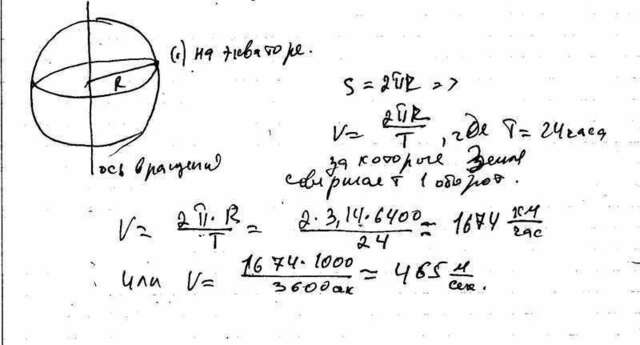 (•) на экваторе.
R
S = 2πR =>
V = 2πR / T , где T = 24 часа
за которые Земля
ось вращения
совершает 1 оборот.
V = 2π·R / T = 2·3,14·6400 / 24 ≈ 1674 км / час
или V = 1674·1000 / 3600 сек ≈ 465 м / сек.